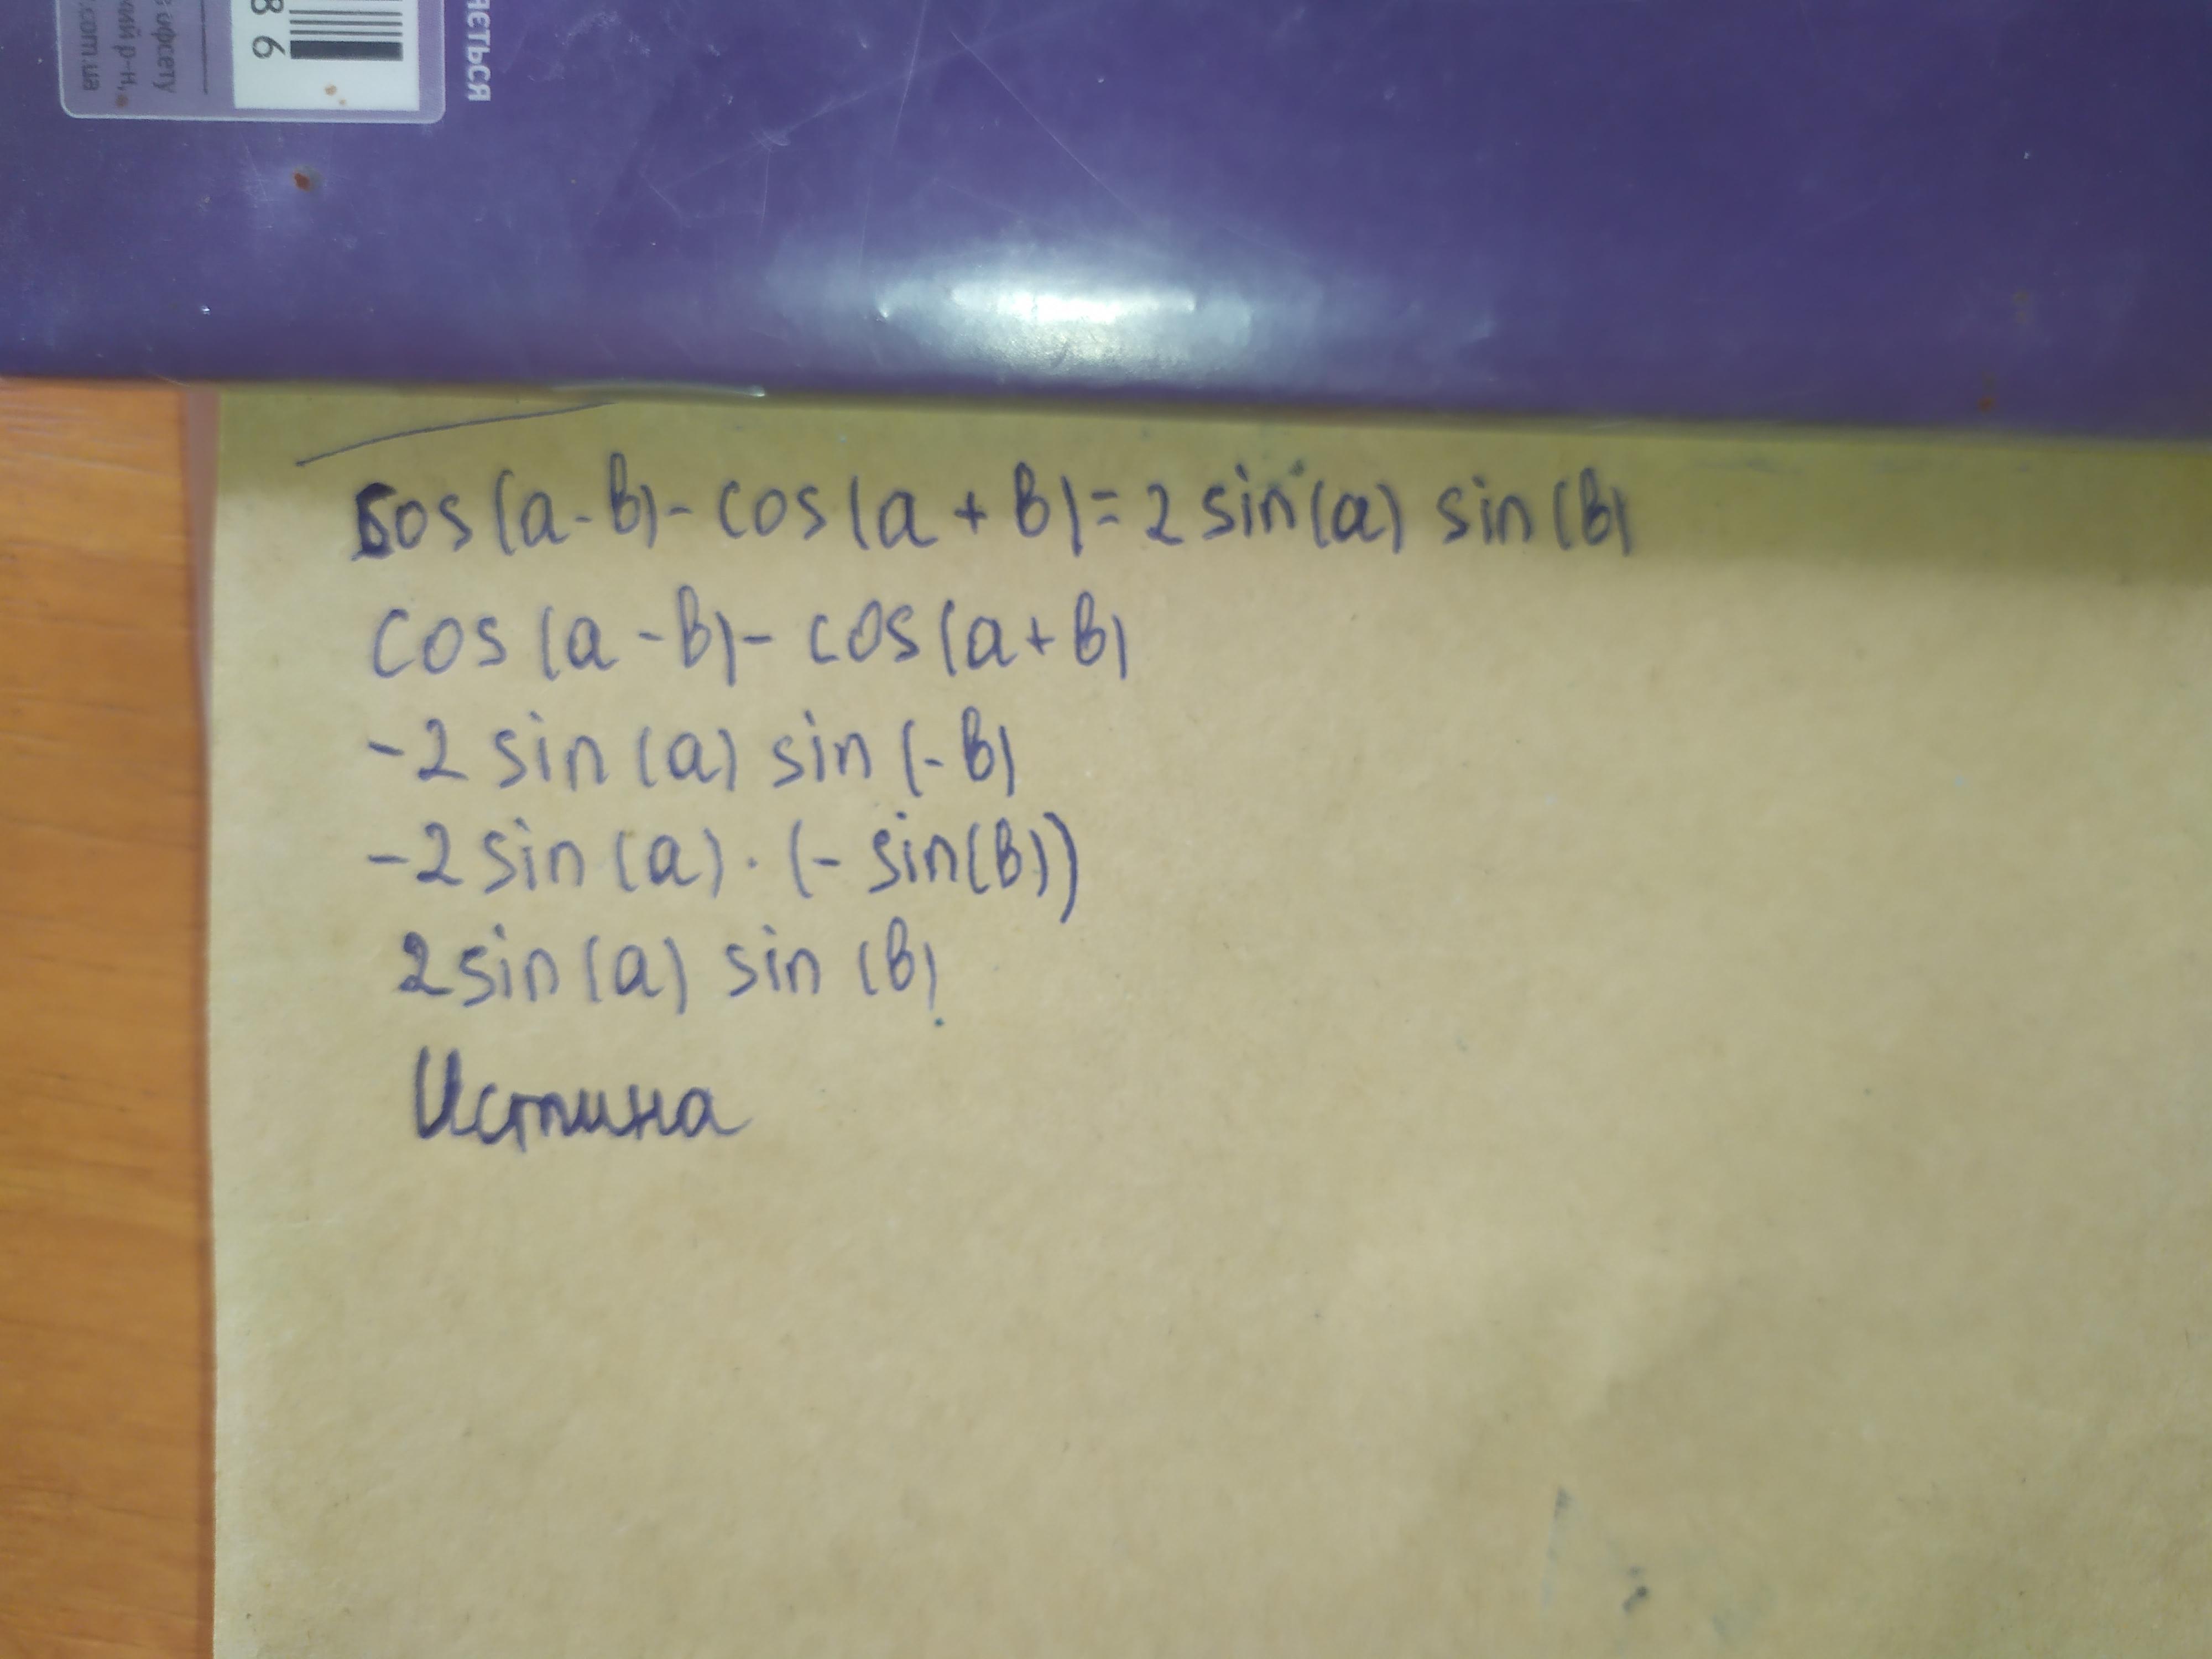 86
в офсету
кий р-н,
.com.ua
яється
cos(a-b)-cos(a+b)=2sin(a) sin(b)
cos(a-b)-cos(a+b)
-2sin(a) sin(-b)
-2sin(a)·(-sin(b))
2sin(a) sin(b)
Истина